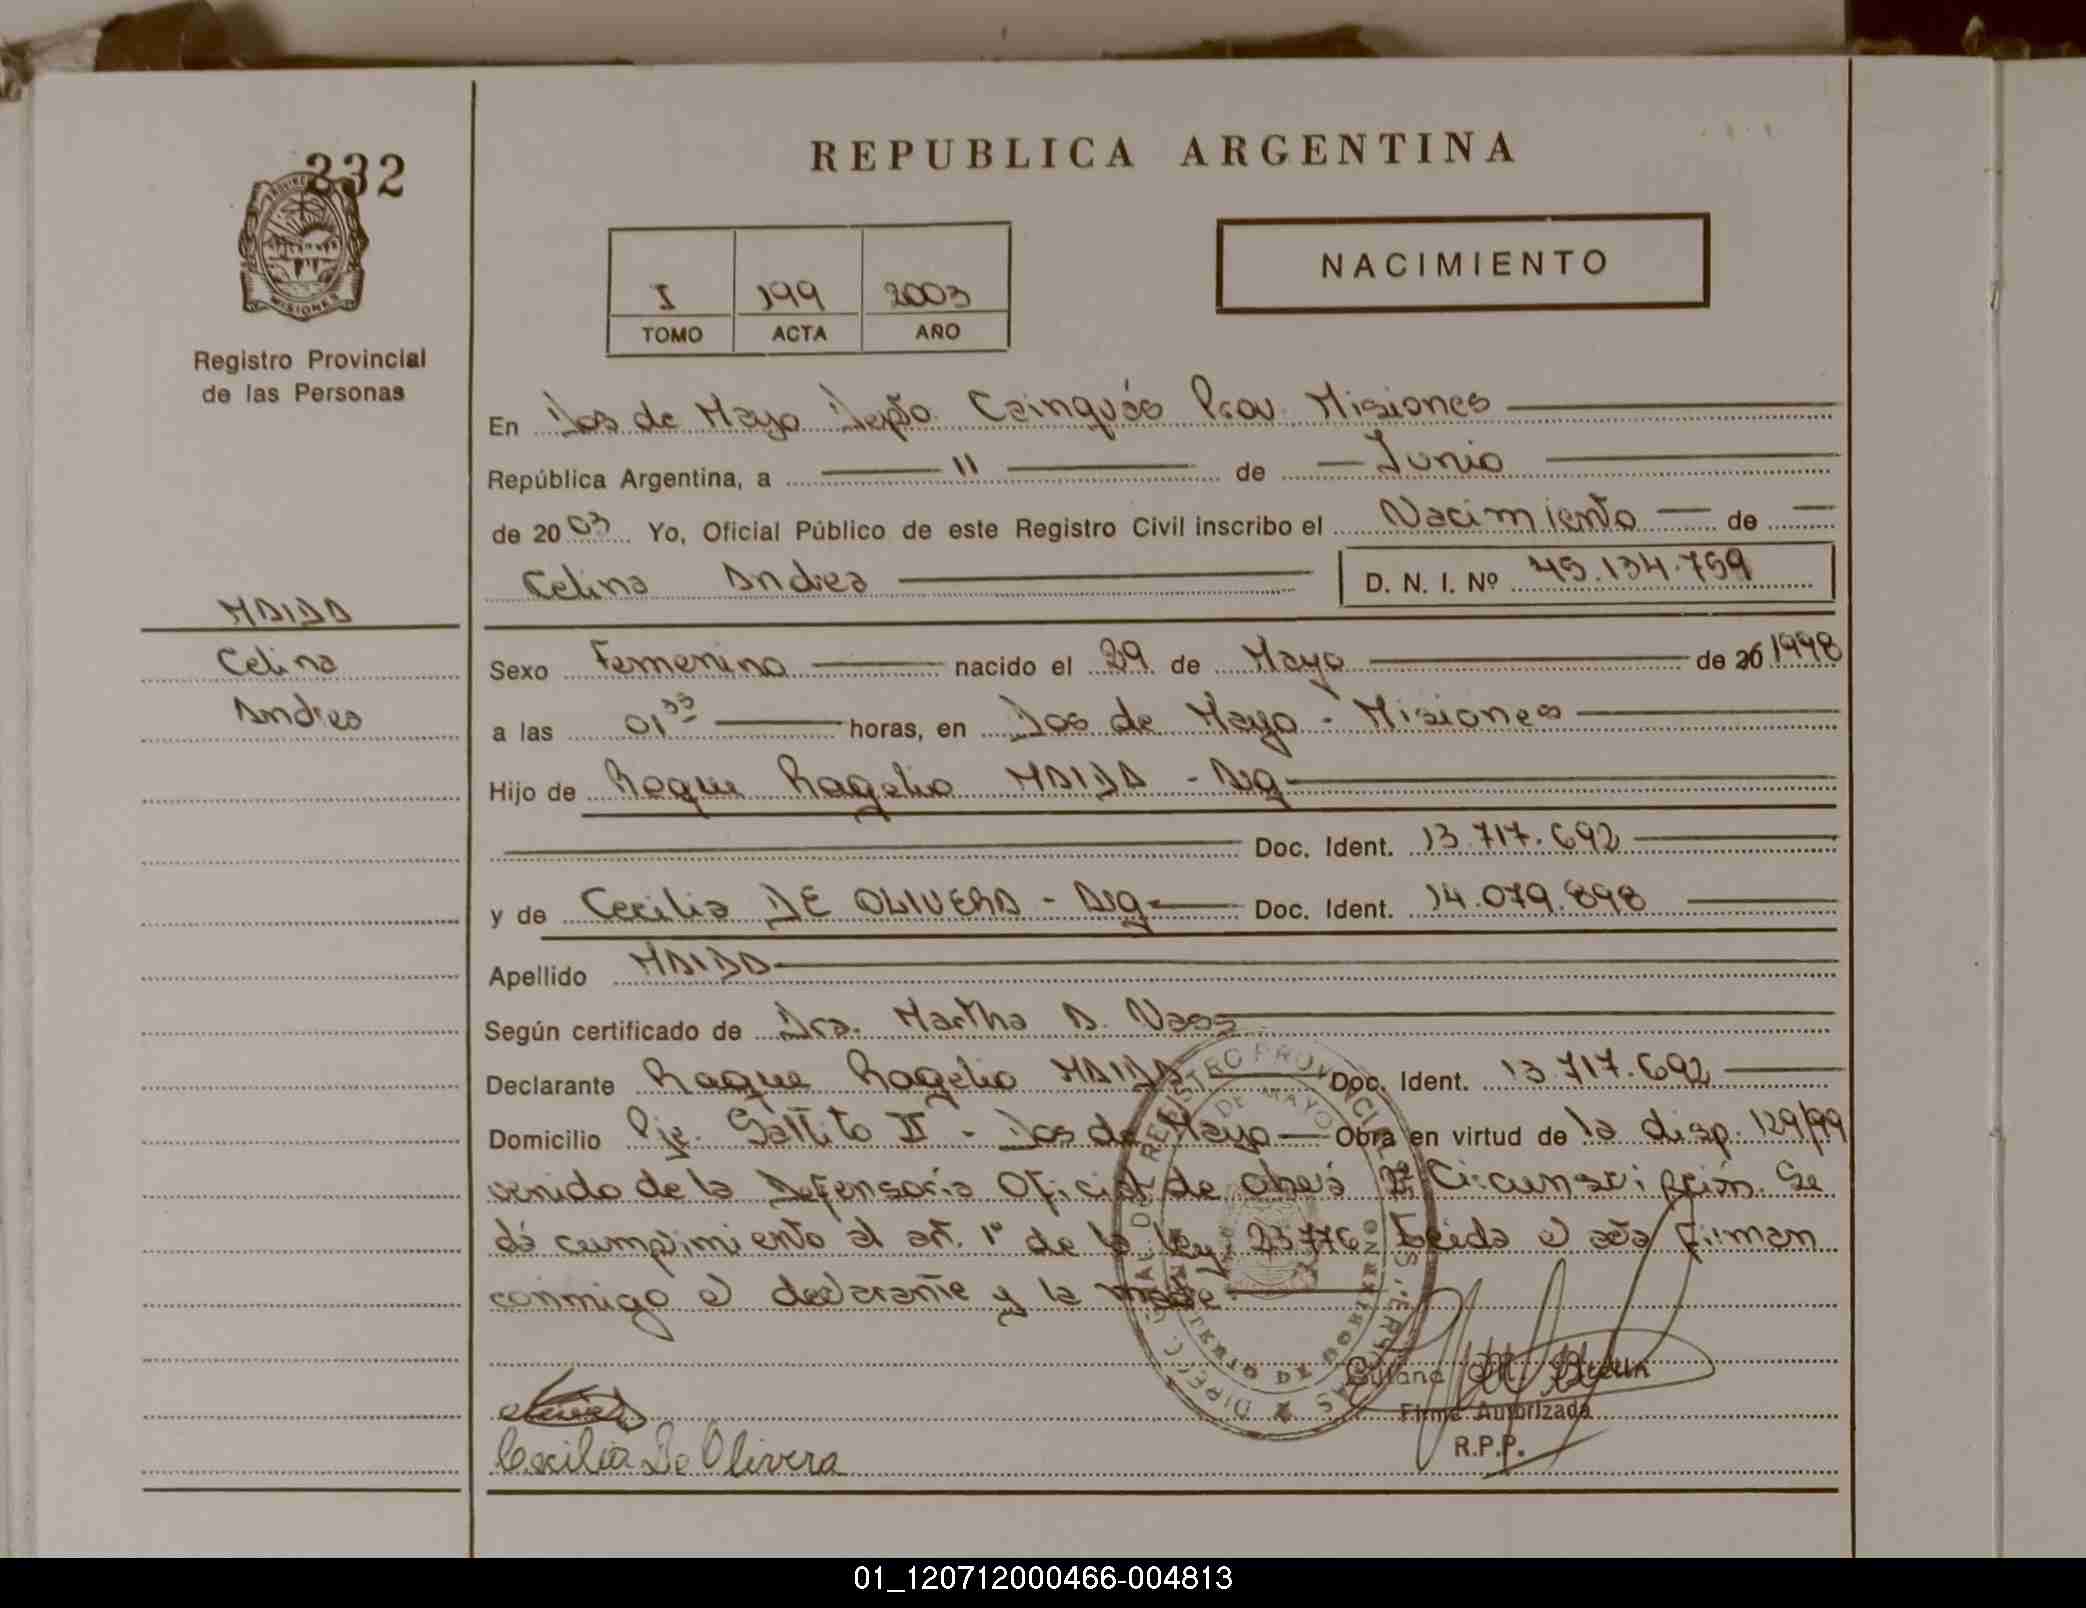 REPUBLICA ARGENTINA
232
PROVINCIA
MISIONES
Registro Provincial
de las Personas
NACIMIENTO
I 199 2003
TOMO ACTA AÑO
En Dos de Mayo Depto. Cainguás Prov. Misiones
República Argentina, a 11 de Junio
de 2003 Yo, Oficial Público de este Registro Civil inscribo el Nacimiento de
Celina Andrea D. N. I. Nº 45.134.759
MAIDA
Celina
Andrea
Sexo Femenino nacido el 29 de Mayo de 20 1998
a las 01 horas, en Dos de Mayo - Misiones
Hijo de Roque Rogelio MAIDA - Arg
Doc. Ident. 13.717.692
y de Cecilia DE OLIVERA - Arg Doc. Ident. 14.079.898
Apellido MAIDA
Según certificado de Dra. Martha A. Nass
Declarante Roque Rogelio MAIDA Doc. Ident. 13.717.692
Domicilio Pje. Gattito II - Dos de Mayo Obra en virtud de la disp. 129/99
venido de la Defensoría Oficial de Oberá II Circunscripción. Se
dá cumplimiento al art. 1º de la ley 23776 Leida el acta firman
conmigo el declarante y la madre
Cecilia De Olivera
Firma Autorizada
R.P.P.
01_120712000466-004813